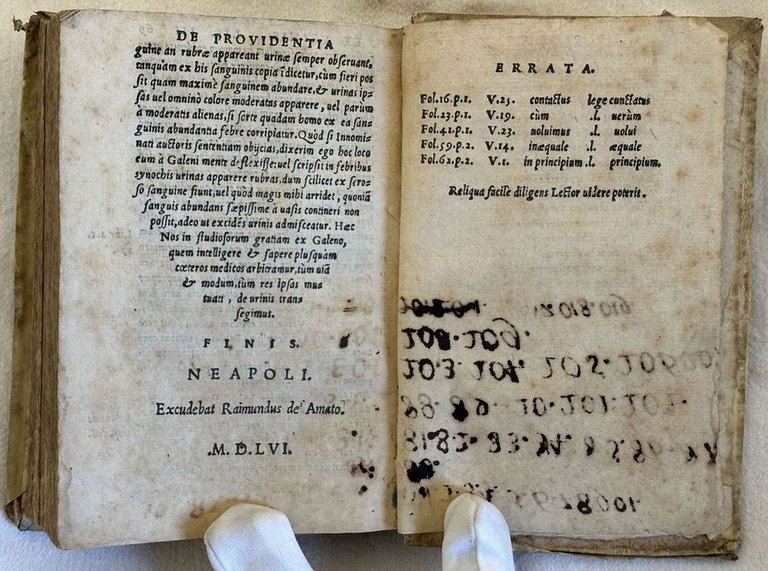 DE PROVIDENTIA
guine an rubræ appareant urinæ semper obseruant,
tanquàm ex his sanguinis copia īdicetur, cùm fieri pos
sit quàm maximè sanguinem abundare, & urinas ip-
sas uel omnino colore moderatas apparere, uel parum
à moderatis alienas, si forte quadam homo ex ea san-
guinis abundantia febre corripiatur. Quòd si Innomi-
nati auctoris sententiam obijcias, dixerim ego hoc loco
eum à Galeni mente deflexisse: uel scripsit in febribus
synochis urinas apparere rubras, dum scilicet ex sero-
so sanguine fiunt, uel quòd magis mihi arridet, quoniā
sanguis abundans sæpissimè à uasis contineri non
possit, adeo ut excidēs urinis admisceatur. Hæc
Nos in studiosorum gratiam ex Galeno,
quem intelligere & sapere plusquàm
cæteros medicos arbitramur, tum uiā
& modum, tum res ipsas mu-
tuati, de urinis trans-
segimus.
FINIS.
NEAPOLI.
Excudebat Raimundus de Amato.
.M. D. LVI.
ERRATA.
Fol.16.p.1. V.25. contactus lege cunctatus
Fol.23.p.1. V.19. cùm .l. uerùm
Fol.41.p.1. V.23. uoluimus .l. uolui
Fol.59.p.2. V.14. inæquale .l. æquale
Fol.62.p.2. V.1. in principium .l. principium.
Reliqua facile diligens Lector uidere poterit.
108. 109.
103. 104. 105. 106
88. 89. 10. 101. 102.
81. 82. 83. 84. 85. 86.